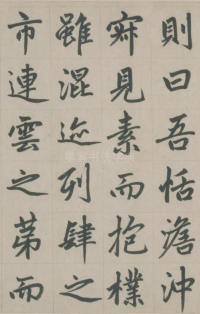 則曰吾恬澹沖
寂見素而抱樸
雖混迹列肆之
市連雲之第而